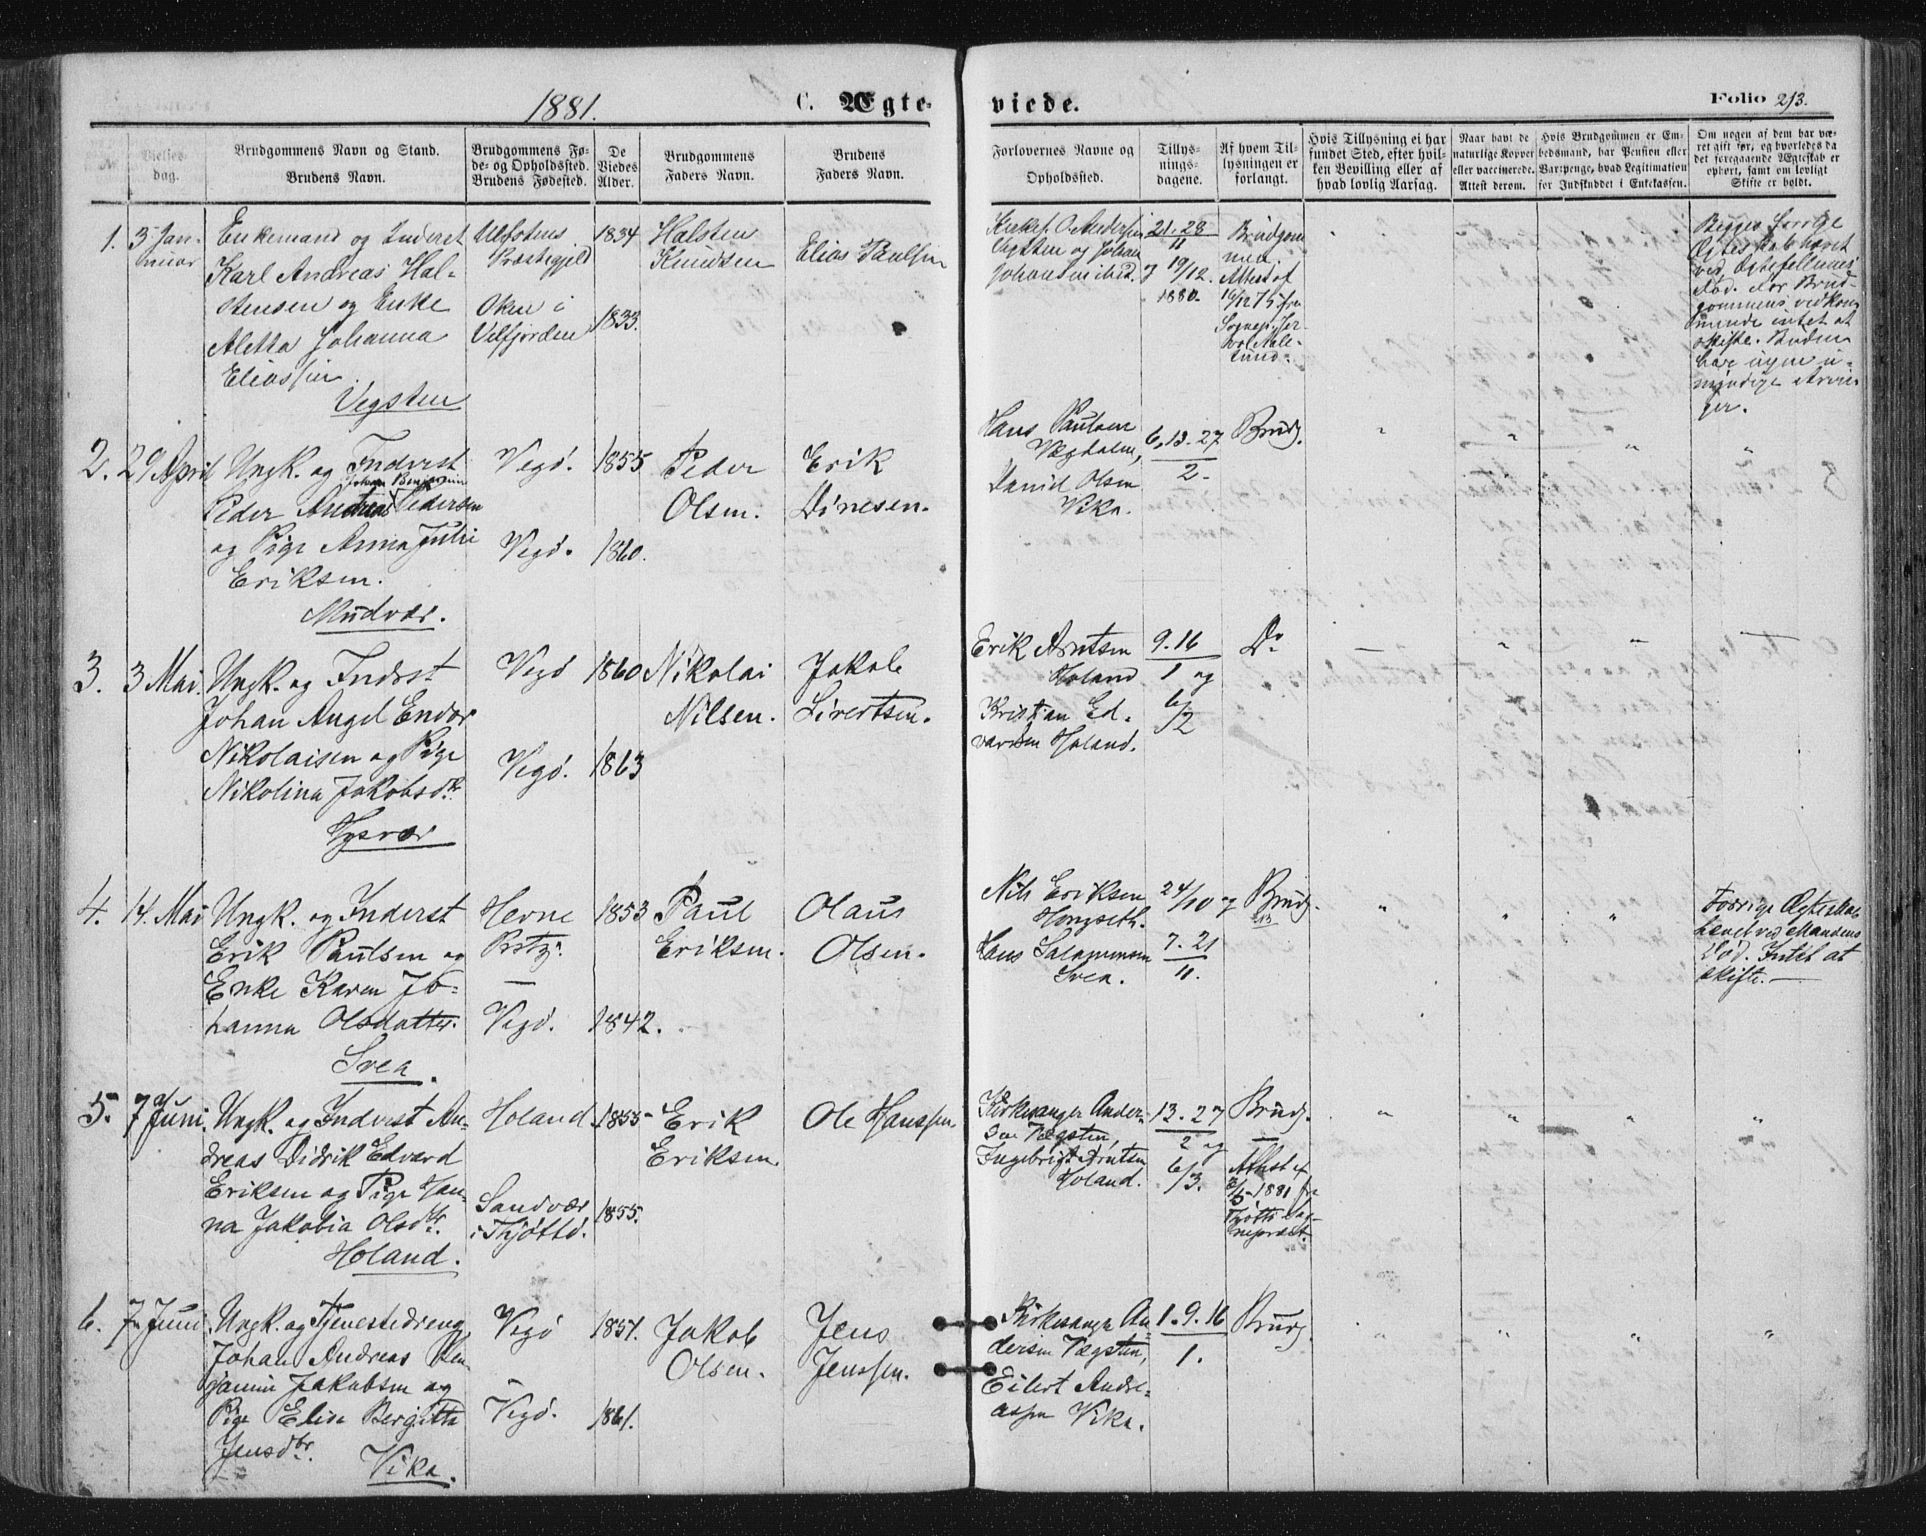 1881.
C. Ægte-
viede.
Folio 213.
No
Vielses-
dag.
Brudgommens Navn og Stand.
Brudens Navn.
Brudgommens Fø-
de- og Opholdssted.
Brudens Fødested.
De
Viedes
Alder.
Brudgommens
Faders Navn.
Brudens
Faders Navn.
Forlovernes Navne og
Opholdssted.
Tillys-
nings-
dagene.
Af hvem Til-
lysningen er
forlangt.
Hvis Tillysning ei har
fundet Sted, efter hvil-
ken Bevilling eller af
hvad lovlig Aarsag.
Naar havt de
naturlige Kopper
eller vaccinerede.
Attest derom.
Hvis Brudgommen er Em-
bedsmand, har Pension eller
Vartpenge, hvad Legitimation
for Indskuddet i Enkekassen.
Om nogen af dem har væ-
ret gift før, og hvorledes da
det foregaaende Ægteskab er
ophørt, samt om lovligt
Skifte er holdt.
1. 3 Jan-
nuar
Enkemand og Inderst
Karl Andreas Hal-
stensen og Enke
Aletta Johanna
Eliassen
Vegsten
Ulfstens
Præstegjeld
Oken i
Velfjorden
1834
1833.
Halsten
Knudsen
Elias Paulsen
Kirkes. O. Andersen
Vegsten og Johan
21. 28
11
19/12.
1880.
Brudgom
med
Attest af
Begges forrige
Ægteskab hævet
ved Ægtefellernes
Død. For Brud-
gommens vedkom
mende intet at
skifte. Bruden
har ingen u-
myndige Arvin
ger.
2. 29 April
Ungk. og Inderst
Johan Benjamin
Peder Andreas Pedersen
og Pige Anna Julie
Eriksen.
Mudvær.
Vegø. 1855
Vegø. 1860.
Peder
Olsen.
Erik
Dinesen.
Hans Paulsen
Vægdalen,
David Olsen
Vika.
6, 13. 27
2.
Brudg.
3. 3 Mai.
Ungk. og Inderst
Johan Angel Endor
Nikolaisen og Pige
Nikolina Jakobsdtr.
Hysvær
Vegø 1860
Vegø. 1863
Nikolai
Nilsen.
Jakob
Sivertsen.
Erik Arntsen
Holand
Kristian Ed-
vardsen Holand.
9. 16
1 og
6/2
Do
4. 14. Mai
Ungk. og Inderst
Erik Paulsen og
Enke Karen Jo-
hanna Olsdatter.
Svea.
Hevne
Prstgj.
—
Vegø.
1853
1842.
Paul
Eriksen.
Olaus
Olsen.
Nils Eriksen
Hongseth.
Hans Salamonsen
Svea.
24/10 og
7. 21
11.
Brudg.
Forrige Ægteskab
hævet ved Mandens
Død. Intet at
skifte.—
5. 7 Juni.
Ungk. og Inderst An-
dreas Didrik Edvard
Eriksen og Pige Han-
na Jakobia Olsdtr.
Holand.
Holand.
Sandvær
i Thjøttø.
1855
1855.
Erik
Eriksen.
Ole Hanssen
Kirkesanger Ander-
sen Vægsten,
Ingebrigt Arntsen
Holand.
13. 27
2 og
6/3.
Brudg.
—
Attest af
3/5 1881 fra
Thjøttø Sog-
nepræst.
6. 7 Juni
Ungk. og Tjenestedreng
Johan Andreas Ben-
jamin Jakobsen og
Pige Elise Bergitta
Jensdtr.
Vika.
Vegø
Vegø.
1857.
1861.
Jakob
Olsen.
Jens
Jenssen.
Kirkesanger An-
dersen Vægsten,
Eilert Andre-
assen Vika.
1. 9. 16
1.
Brudg.